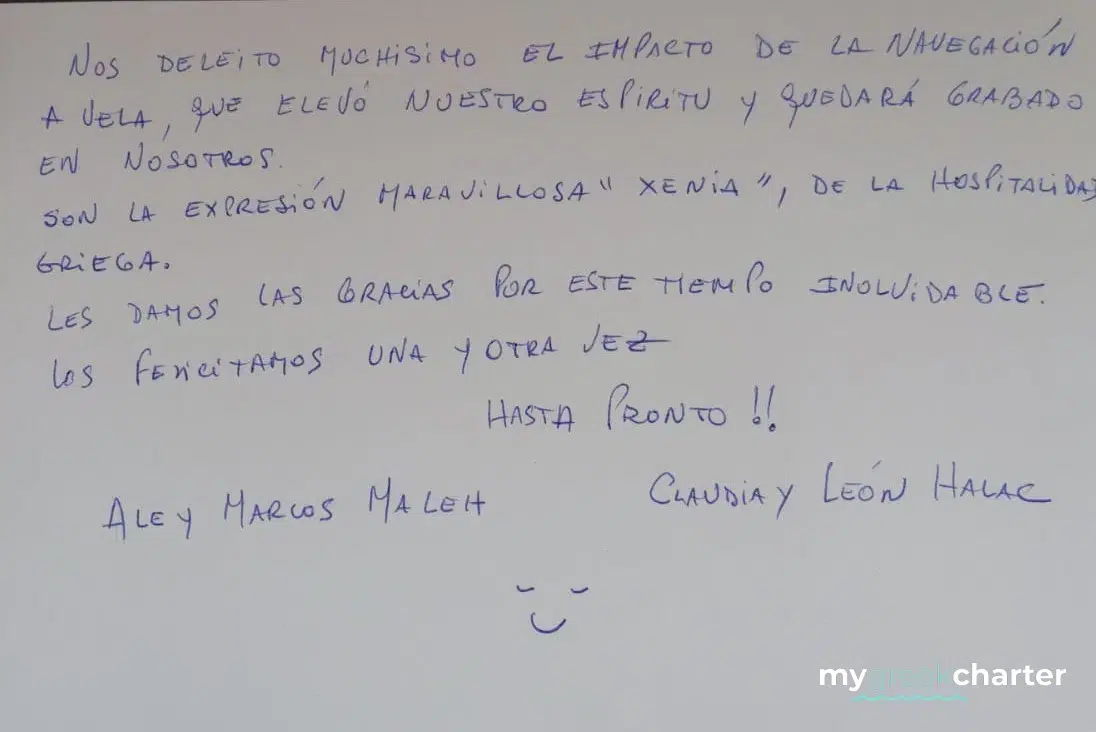 NOS DELEITO MUCHISIMO EL IMPACTO DE LA NAVEGACIÓN
A VELA, QUE ELEVÓ NUESTRO ESPIRITU Y QUEDARÁ GRABADO
EN NOSOTROS.
SON LA EXPRESIÓN MARAVILLOSA " XENIA ", DE LA HOSPITALIDAD
GRIEGA.
LES DAMOS LAS GRACIAS POR ESTE TIEMPO INOLVIDABLE.
LOS FELICITAMOS UNA Y OTRA VEZ
HASTA PRONTO !!
ALE Y MARCOS MALEH
CLAUDIA Y LEÓN HALAC
mygreekcharter